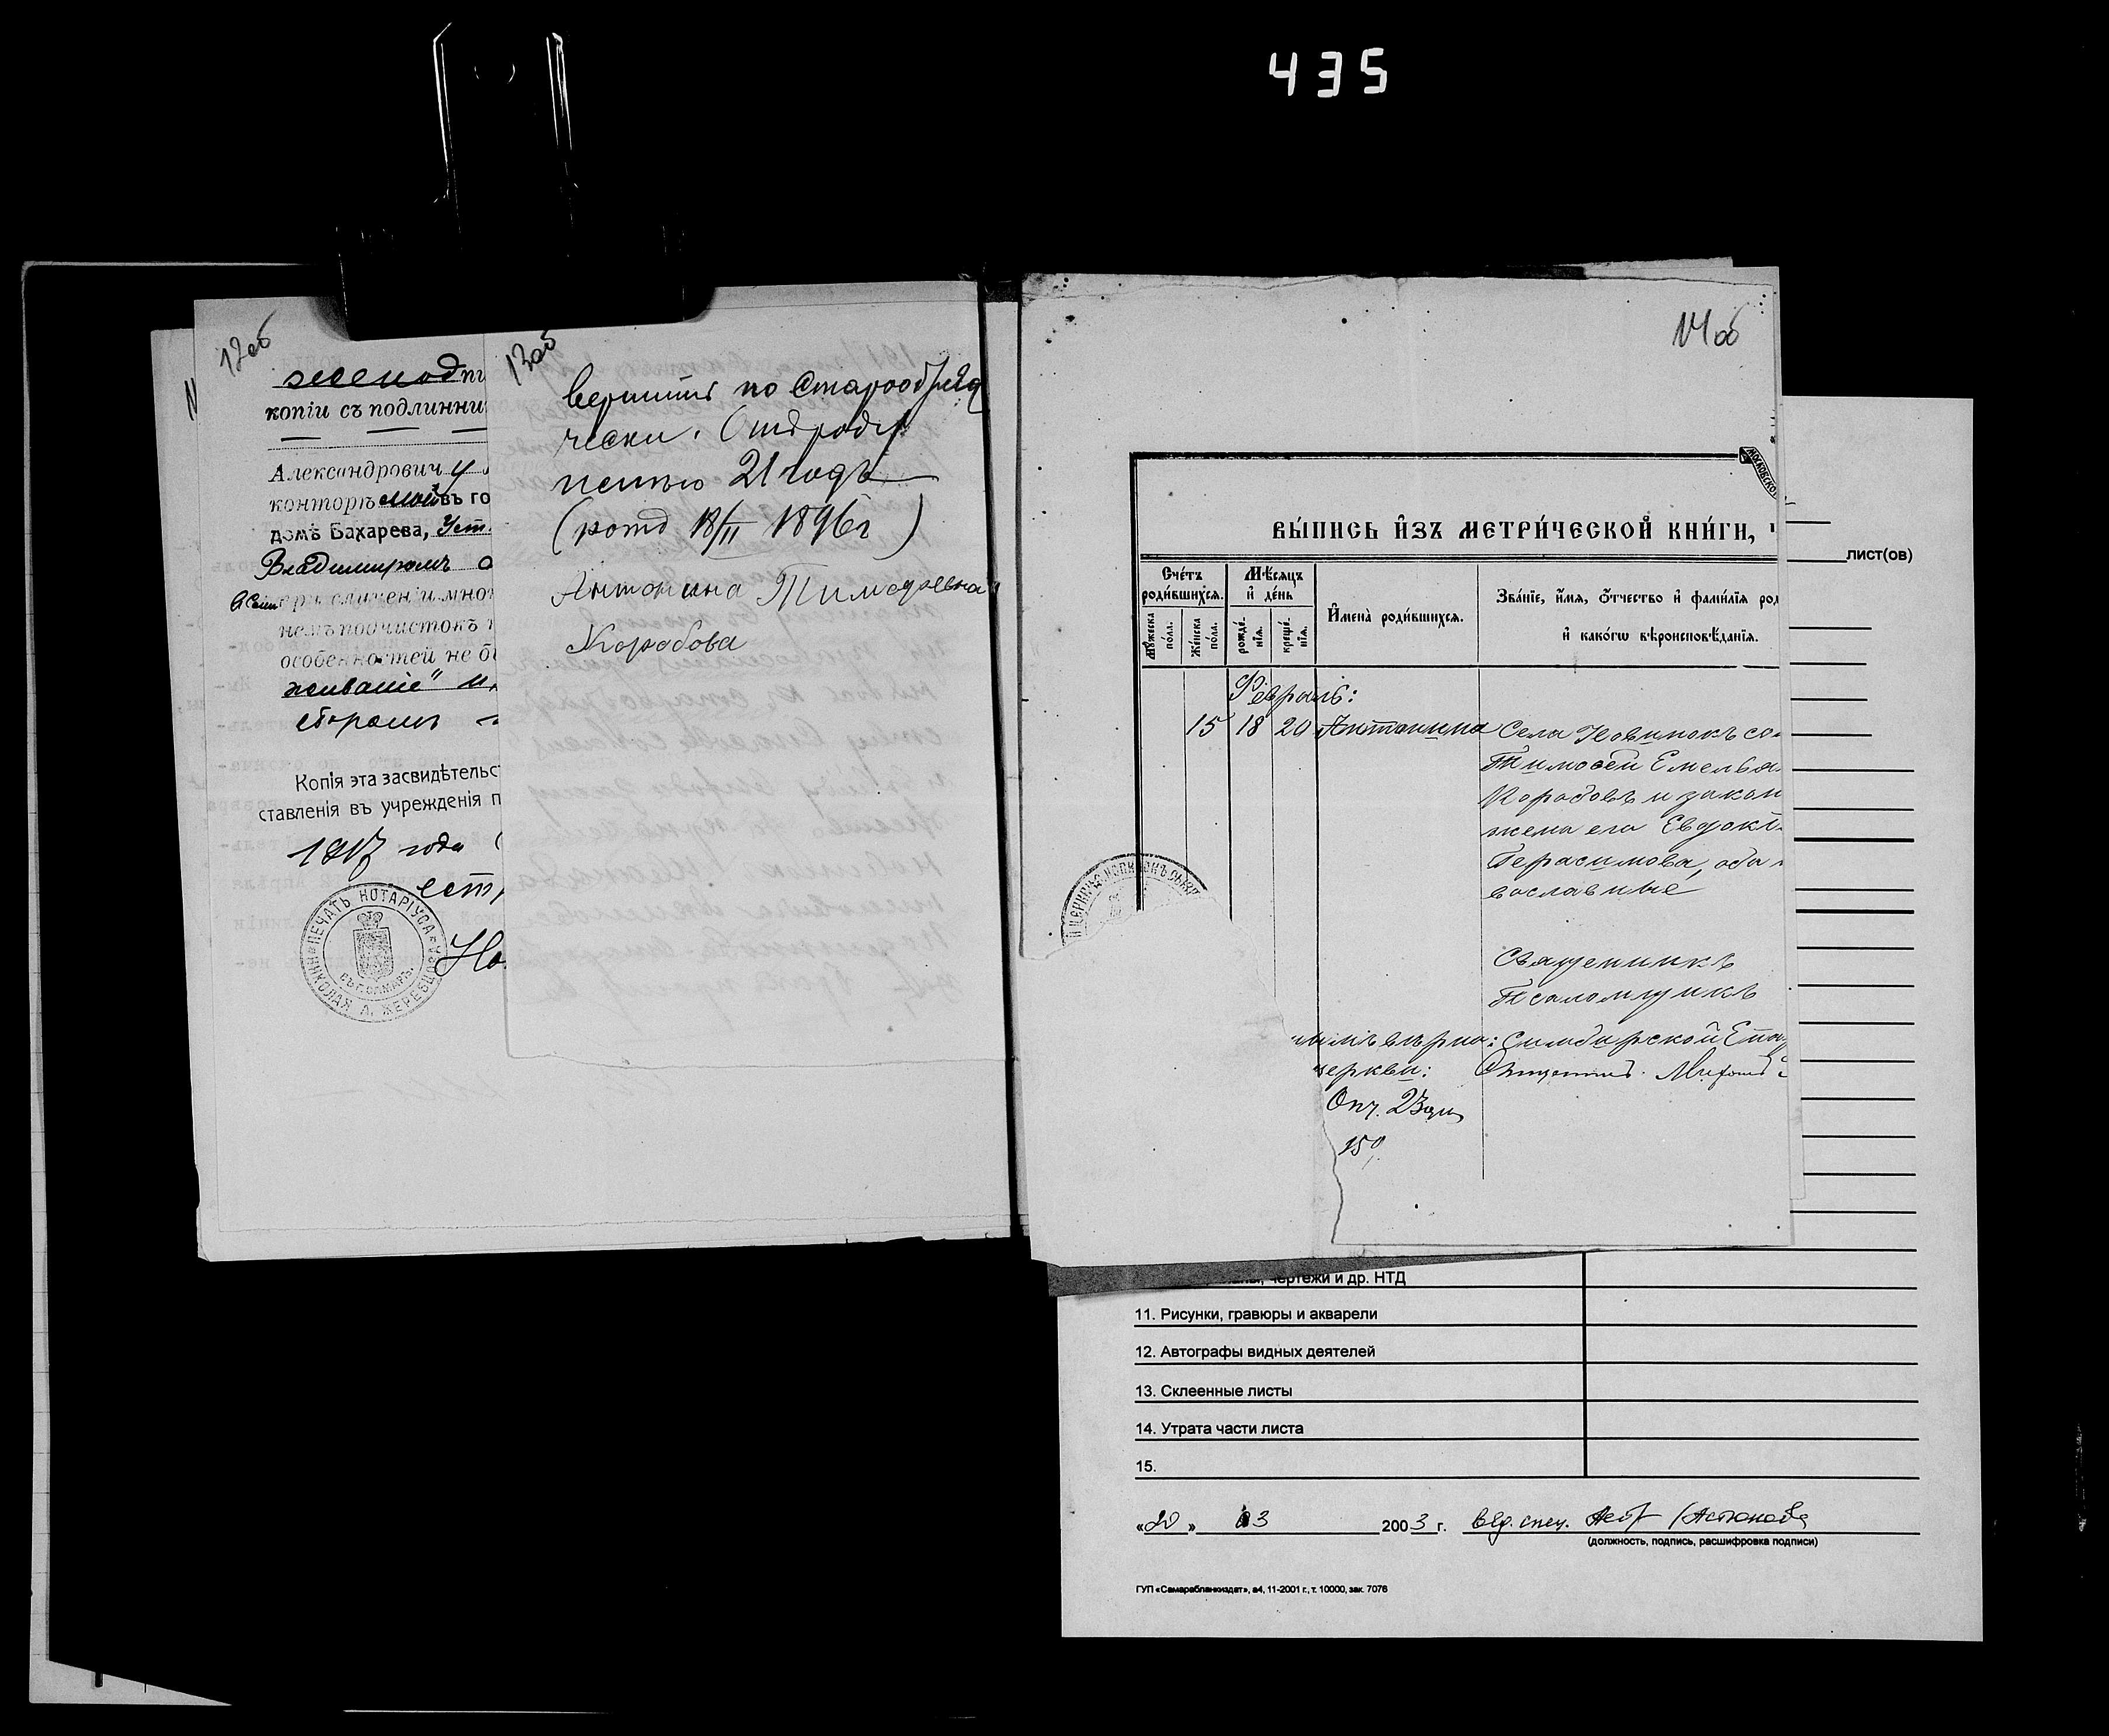 435
12об
женодпи
копіи съ подлинни
Александрович у
конторѣ моей въ го
домѣ Бахарева,
Владимиромъ
при сличеніи
немъ подчистокъ
особенностей не б
живаніе" и,
Копія эта засвидѣтельс
ставленія въ учрежденія п
1917 года
ПЕЧАТЬ НОТАРІУСА
НИКОЛАЯ А. ЖЕРЕБЦОВА
ВЪ Г. САМАРѢ.
Но
13об
вершить по старообряд
чески. Отъ роду
исполн 21 годъ
(род 18/II 1896 г)
Антонина Тимофеевна
Коробова
14об
МОСКОВСКО
ВЫ́ПИСЬ И҆ЗЪ МЕТРИ́ЧЕСКОЙ КНИ́ГИ,
Сче́тъ роди́вшихсѧ.
Мѣ́сяцъ и҆ де́нь
Мꙋ́жеска по́ла.
Же́нска по́ла.
рожде́нїѧ.
креще́нїѧ.
И҆мена̀ роди́вшихсѧ.
Зва́нїе, и҆́мѧ, ѻ҆́тчество и҆ фами́лїѧ род
и҆ како́гѡ вѣроисповѣ́данїѧ.
Февраль:
15 18 20 Антонина Села Новинокъ
Тимофей Емелья
Коробовъ и закон
жена его Евдокі
Герасимова, оба
вославные
Священникъ
Псаломщикъ
вѣрна: Симбирской Епа
церкви: Священникъ
150
лист(ов)
чертежи и др. НТД
11. Рисунки, гравюры и акварели
12. Автографы видных деятелей
13. Склеенные листы
14. Утрата части листа
15.
«20» 03 2003 г. вед. спец.
(должность, подпись, расшифровка подписи)
ГУП «Самарабланкиздат», а4, 11-2001 г., т. 10000, зак. 7076